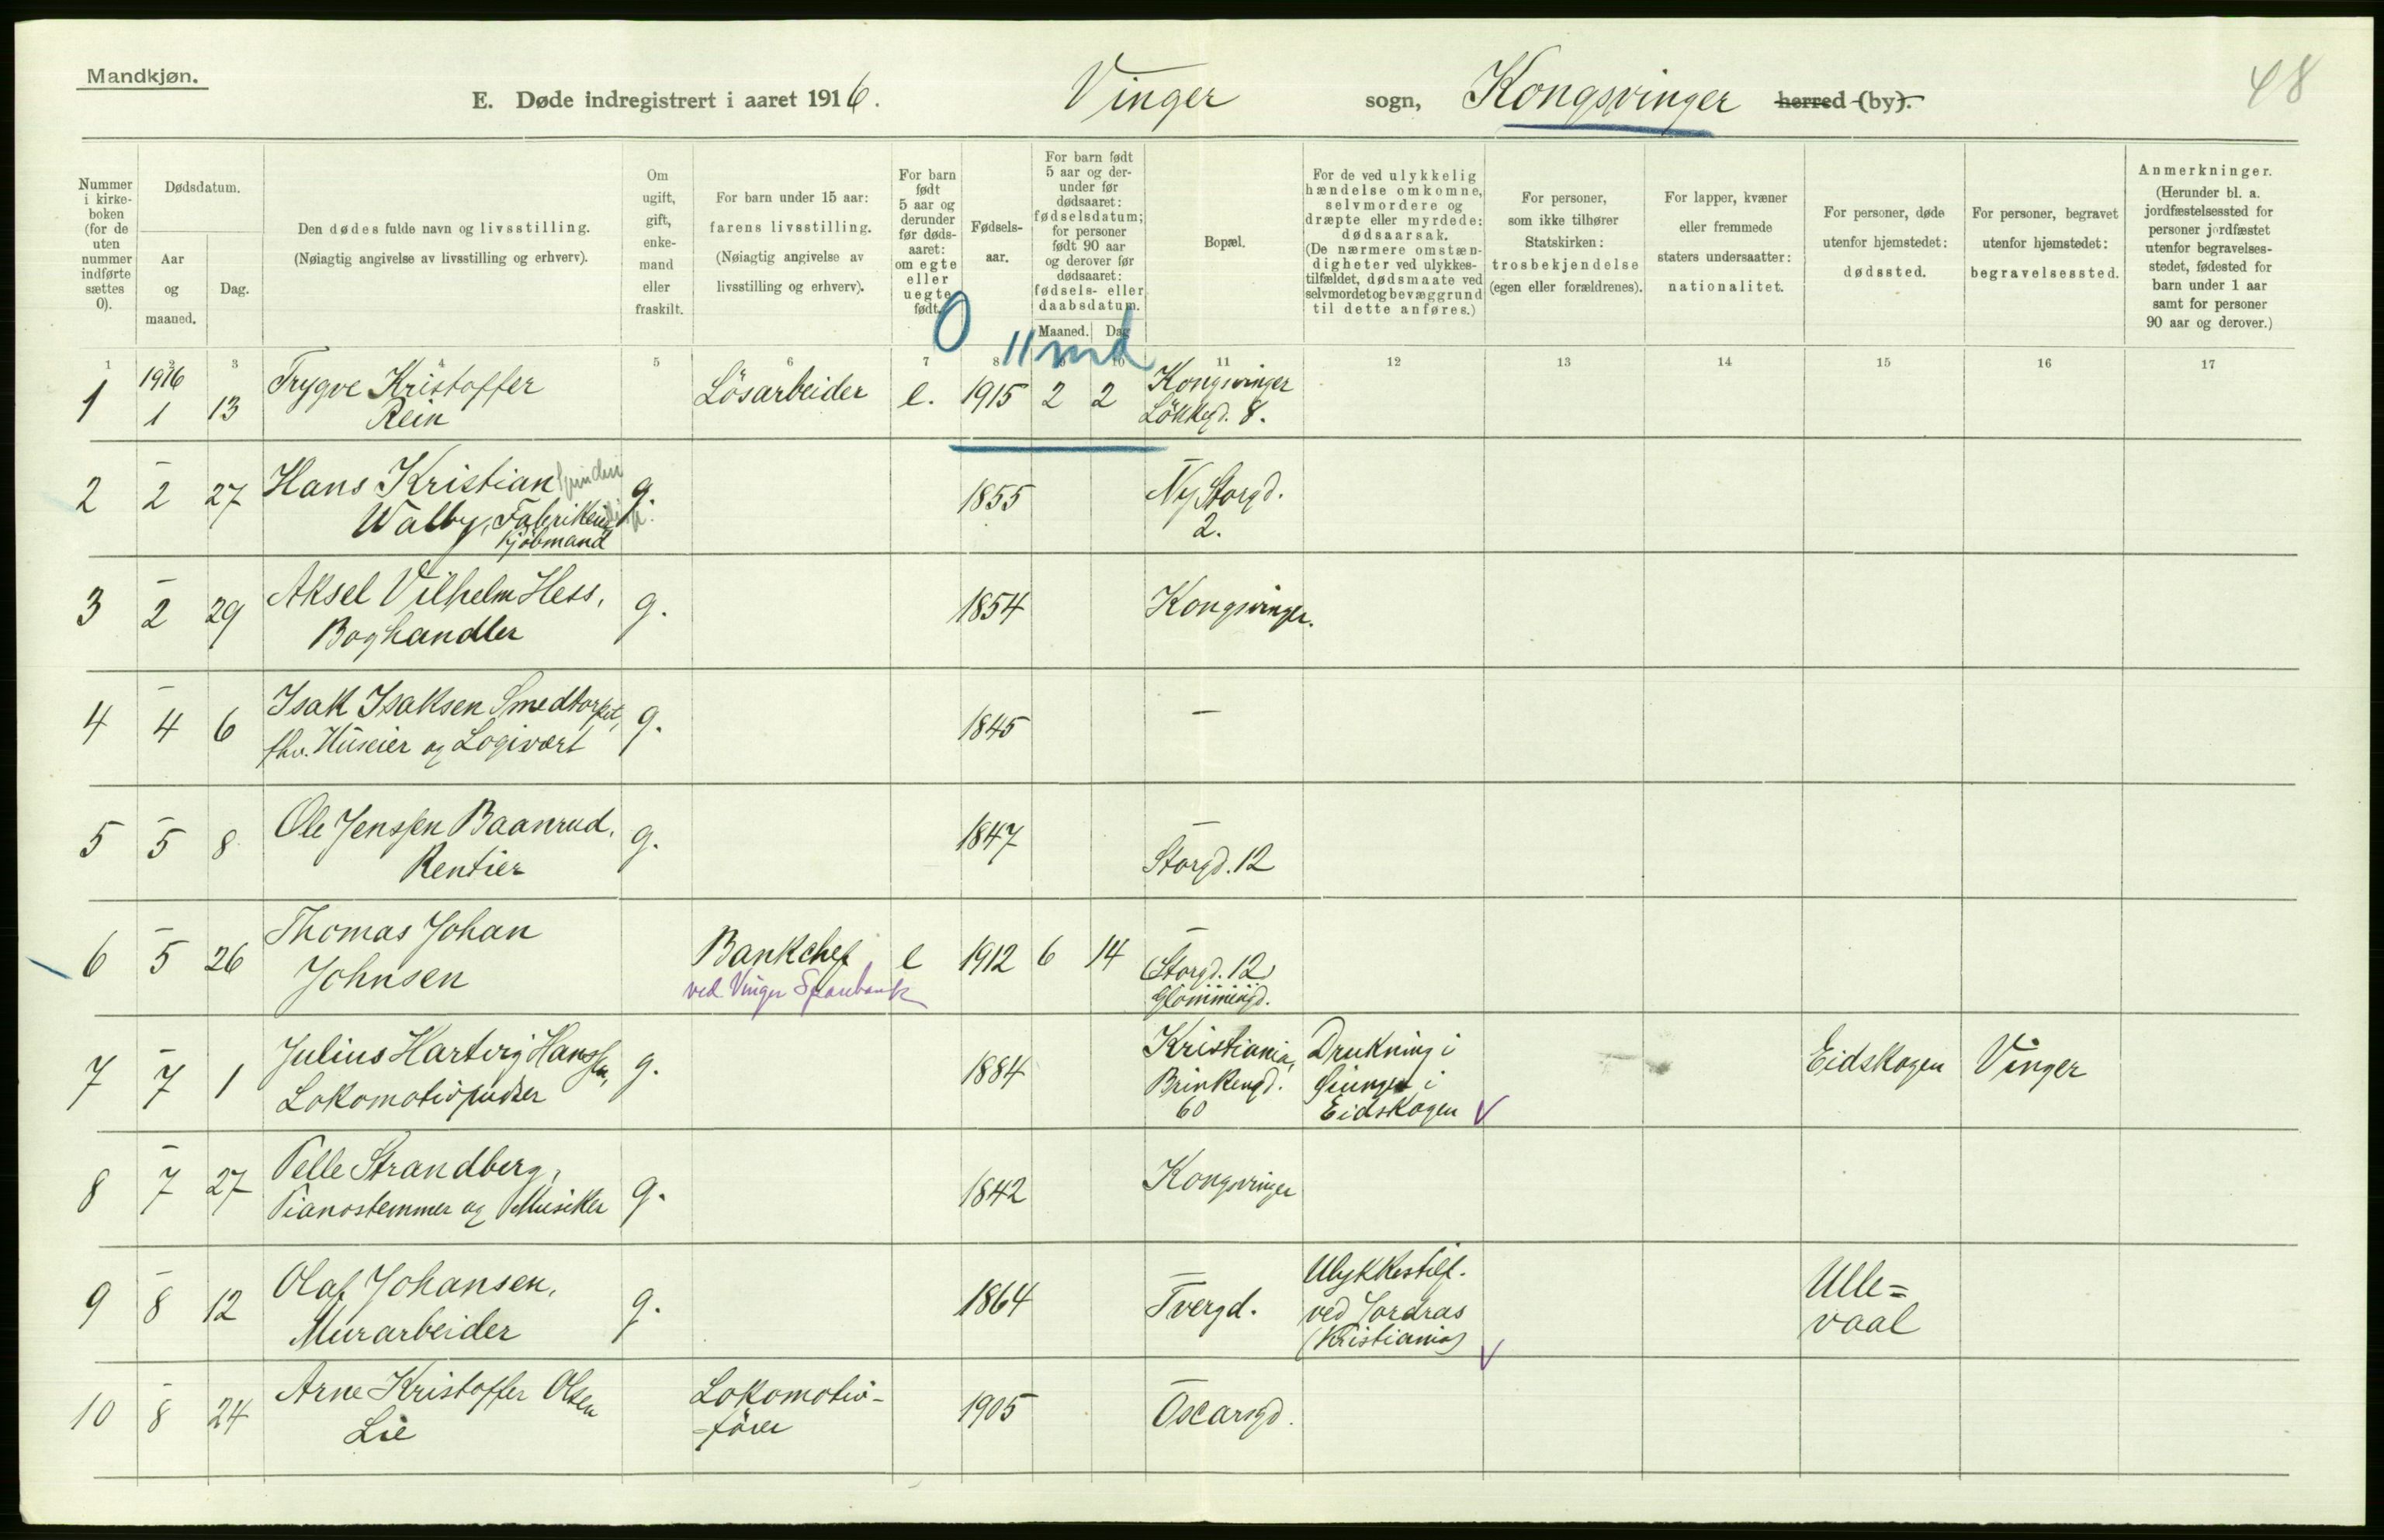 Mandkjøn.
E. Døde indregistrert i aaret 1916. Vinger sogn, Kongsvinger herred (by).
48
Nummer i kirke-boken (for de uten nummer indførte sættes 0).
Dødsdatum.
Aar og maaned.
Dag.
Den dødes fulde navn og livsstilling.
(Nøiagtig angivelse av livsstilling og erhverv).
Om ugift, gift, enke-mand eller fraskilt.
For barn under 15 aar:
farens livsstilling.
(Nøiagtig angivelse av livsstilling og erhverv).
For barn født 5 aar og derunder før døds-aaret: om egte eller uegte født.
Fødsels-aar.
For barn født 5 aar og der-under før dødsaaret: fødselsdatum; for personer født 90 aar og derover før dødsaaret: fødsels- eller daabsdatum.
Maaned. Dag
Bopæl.
For de ved ulykkelig hændelse omkomne, selvmordere og dræpte eller myrdede: dødsaarsak.
(De nærmere omstæn-digheter ved ulykkes-tilfældet, dødsmaate ved selvmordet og bevæggrund til dette anføres.)
For personer, som ikke tilhører Statskirken: trosbekjendelse (egen eller forældrenes).
For lapper, kvæner eller fremmede staters undersaatter: nationalitet.
For personer, døde utenfor hjemstedet: dødssted.
For personer, begravet utenfor hjemstedet: begravelsessted.
Anmerkninger.
(Herunder bl. a. jordfæstelsessted for personer jordfæstet utenfor begravelses-stedet, fødested for barn under 1 aar samt for personer 90 aar og derover.)
0 11 md
1 2 3 4 5 6 7 8 9 10 11 12 13 14 15 16 17
1 1916 1 13 Trygve Kristoffer Rein Lösarbeider e. 1915 2 2 Kongsvinger Lökkegd. 8.
2 – 2 27 Hans Kristian Walby, Fabrikeier Kjöbmand g. 1855 – Ny Storgd. 2.
3 – 2 29 Aksel Vilhelm Hess, Boghandler g. 1854 Kongsvinger.
4 – 4 6 Isak Isaksen Smedtorpet, fhv. Huseier og Logivært g. 1845 –
5 – 5 8 Ole Jenssen Baanrud, Rentier g. 1847 – Storgd. 12
6 – 5 26 Thomas Johan Johnsen Bankchef ved Vinger Sparebank e 1912 6 14 – (Storgd. 12) Glommengd.
7 – 7 1 Julius Hartvig Hanssen, Lokomotivpudser g. 1884 Kristiania, Brinkengd. 60 Drukning i Öiungen i Eidskogen V Eidskogen Vinger
8 – 7 27 Pelle Strandberg, Pianostemmer og Musiker g. 1842 Kongsvinger
9 – 8 12 Olaf Johansen, Murarbeider g. 1864 – Tvergd. Ulykkestilf. ved Jordras (Kristiania) V Ulle=vaal
10 – 8 24 Arne Kristoffer Olsen Lie Lokomotiv-förer 1905 – Oscarsgd.